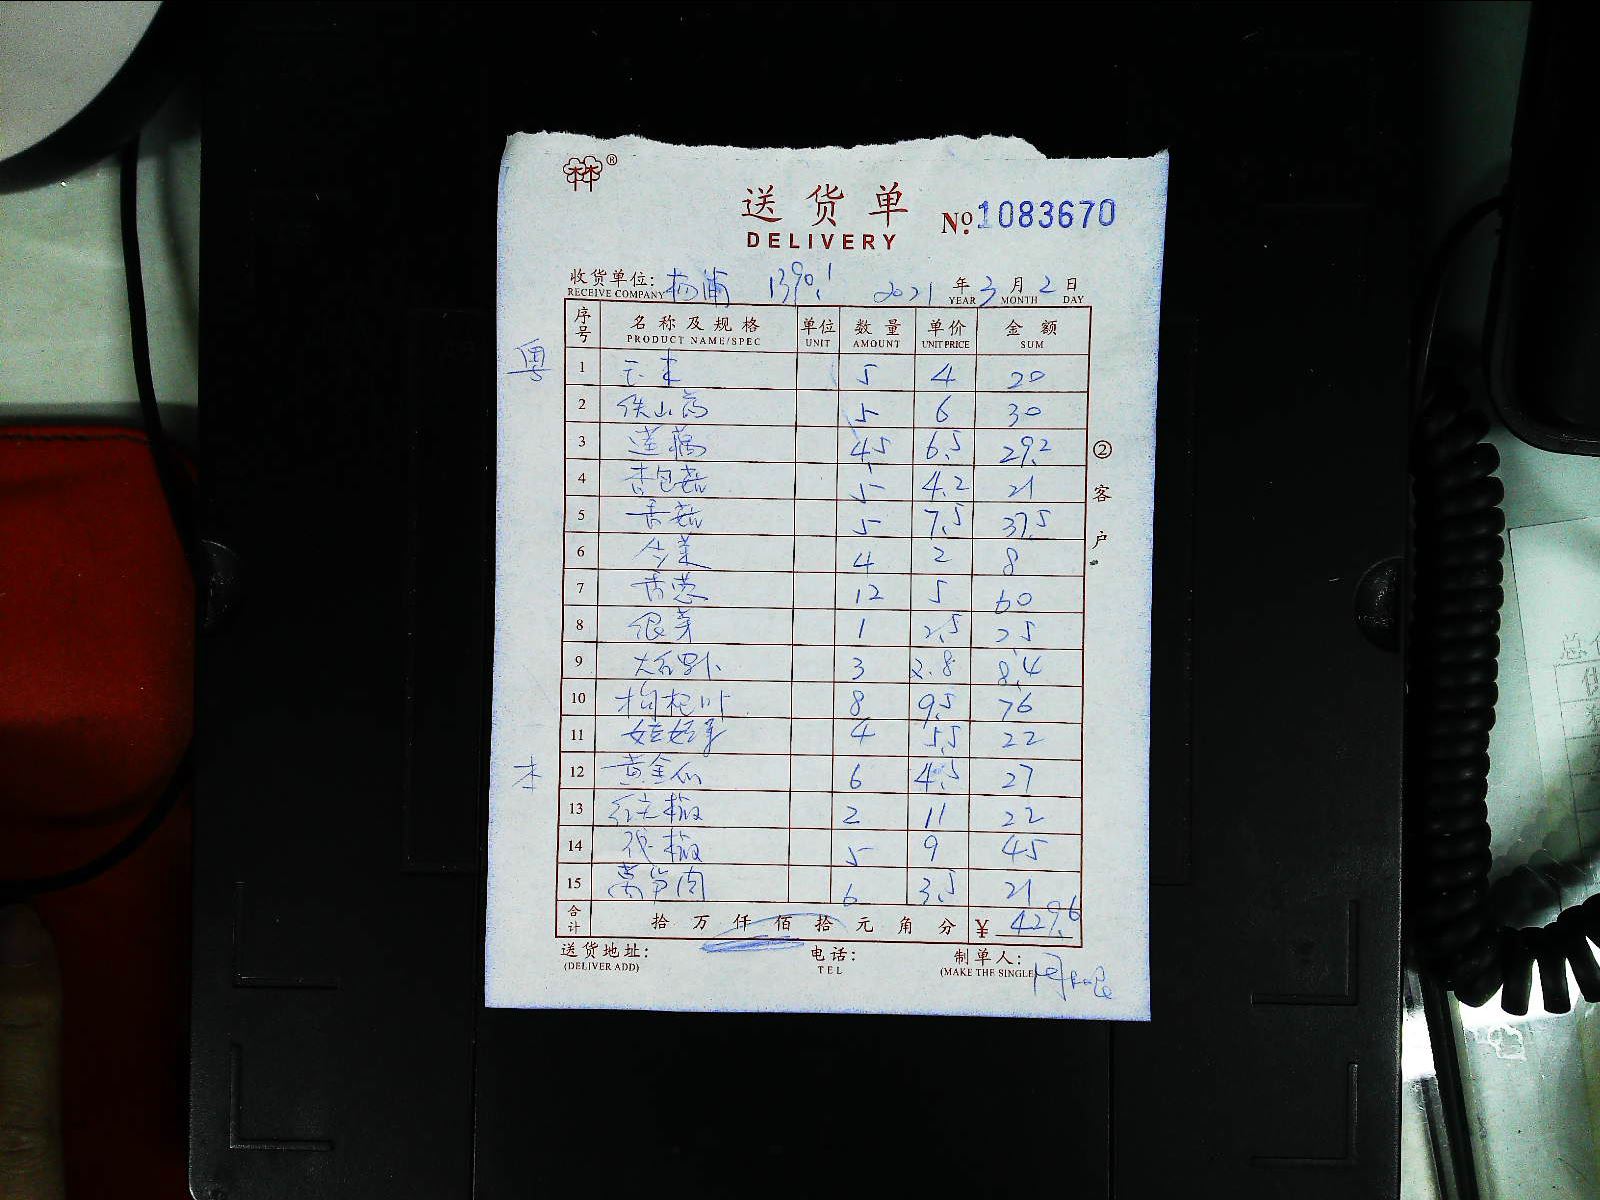 ®
送货单 No. 1083670
DELIVERY
收货单位: 杨浦 1390.1 2021 年 3 月 2 日
RECEIVE COMPANY YEAR MONTH DAY
序号 名称及规格 单位 数量 单价 金额
PRODUCT NAME/SPEC UNIT AMOUNT UNIT PRICE SUM
粤
1 玉米 5 4 20
2 铁山药 5 6 30
3 莲藕 4.5 6.5 29.2
4 杏包菇 5 4.2 21
5 香菇 5 7.5 37.5
6 4 2 8
7 香葱 12 5 60
8 银芽 1 2.5 2.5
9 3 2.8 8.4
10 枸杞叶 8 9.5 76
11 娃娃菜 4 5.5 22
本
12 黄金瓜 6 4.5 27
13 红尖椒 2 11 22
14 椒 5 9 45
15 莴笋肉 6 3.5 21
合计 拾 万 仟 佰 拾 元 角 分 ¥ 429.6
②客户
送货地址: 电话: 制单人: 周
(DELIVER ADD) TEL (MAKE THE SINGLE)
总